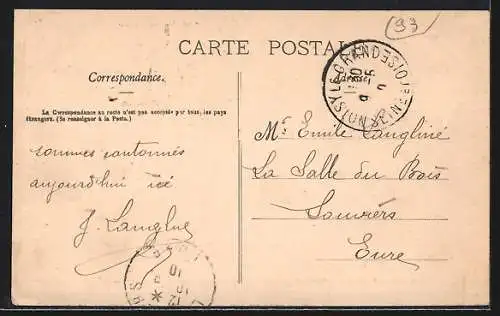 93
CARTE POSTALE
Correspondance.
La Correspondance au recto n'est pas acceptée par tous les pays
étrangers. (Se renseigner à la Poste.)
sommes cantonnés
aujourd'hui ici
J. Langlué
NOISY-LE-GRAND SEINE-ET-OISE
Mr Emile Langliné
La Salle du Bois
Louviers
Eure